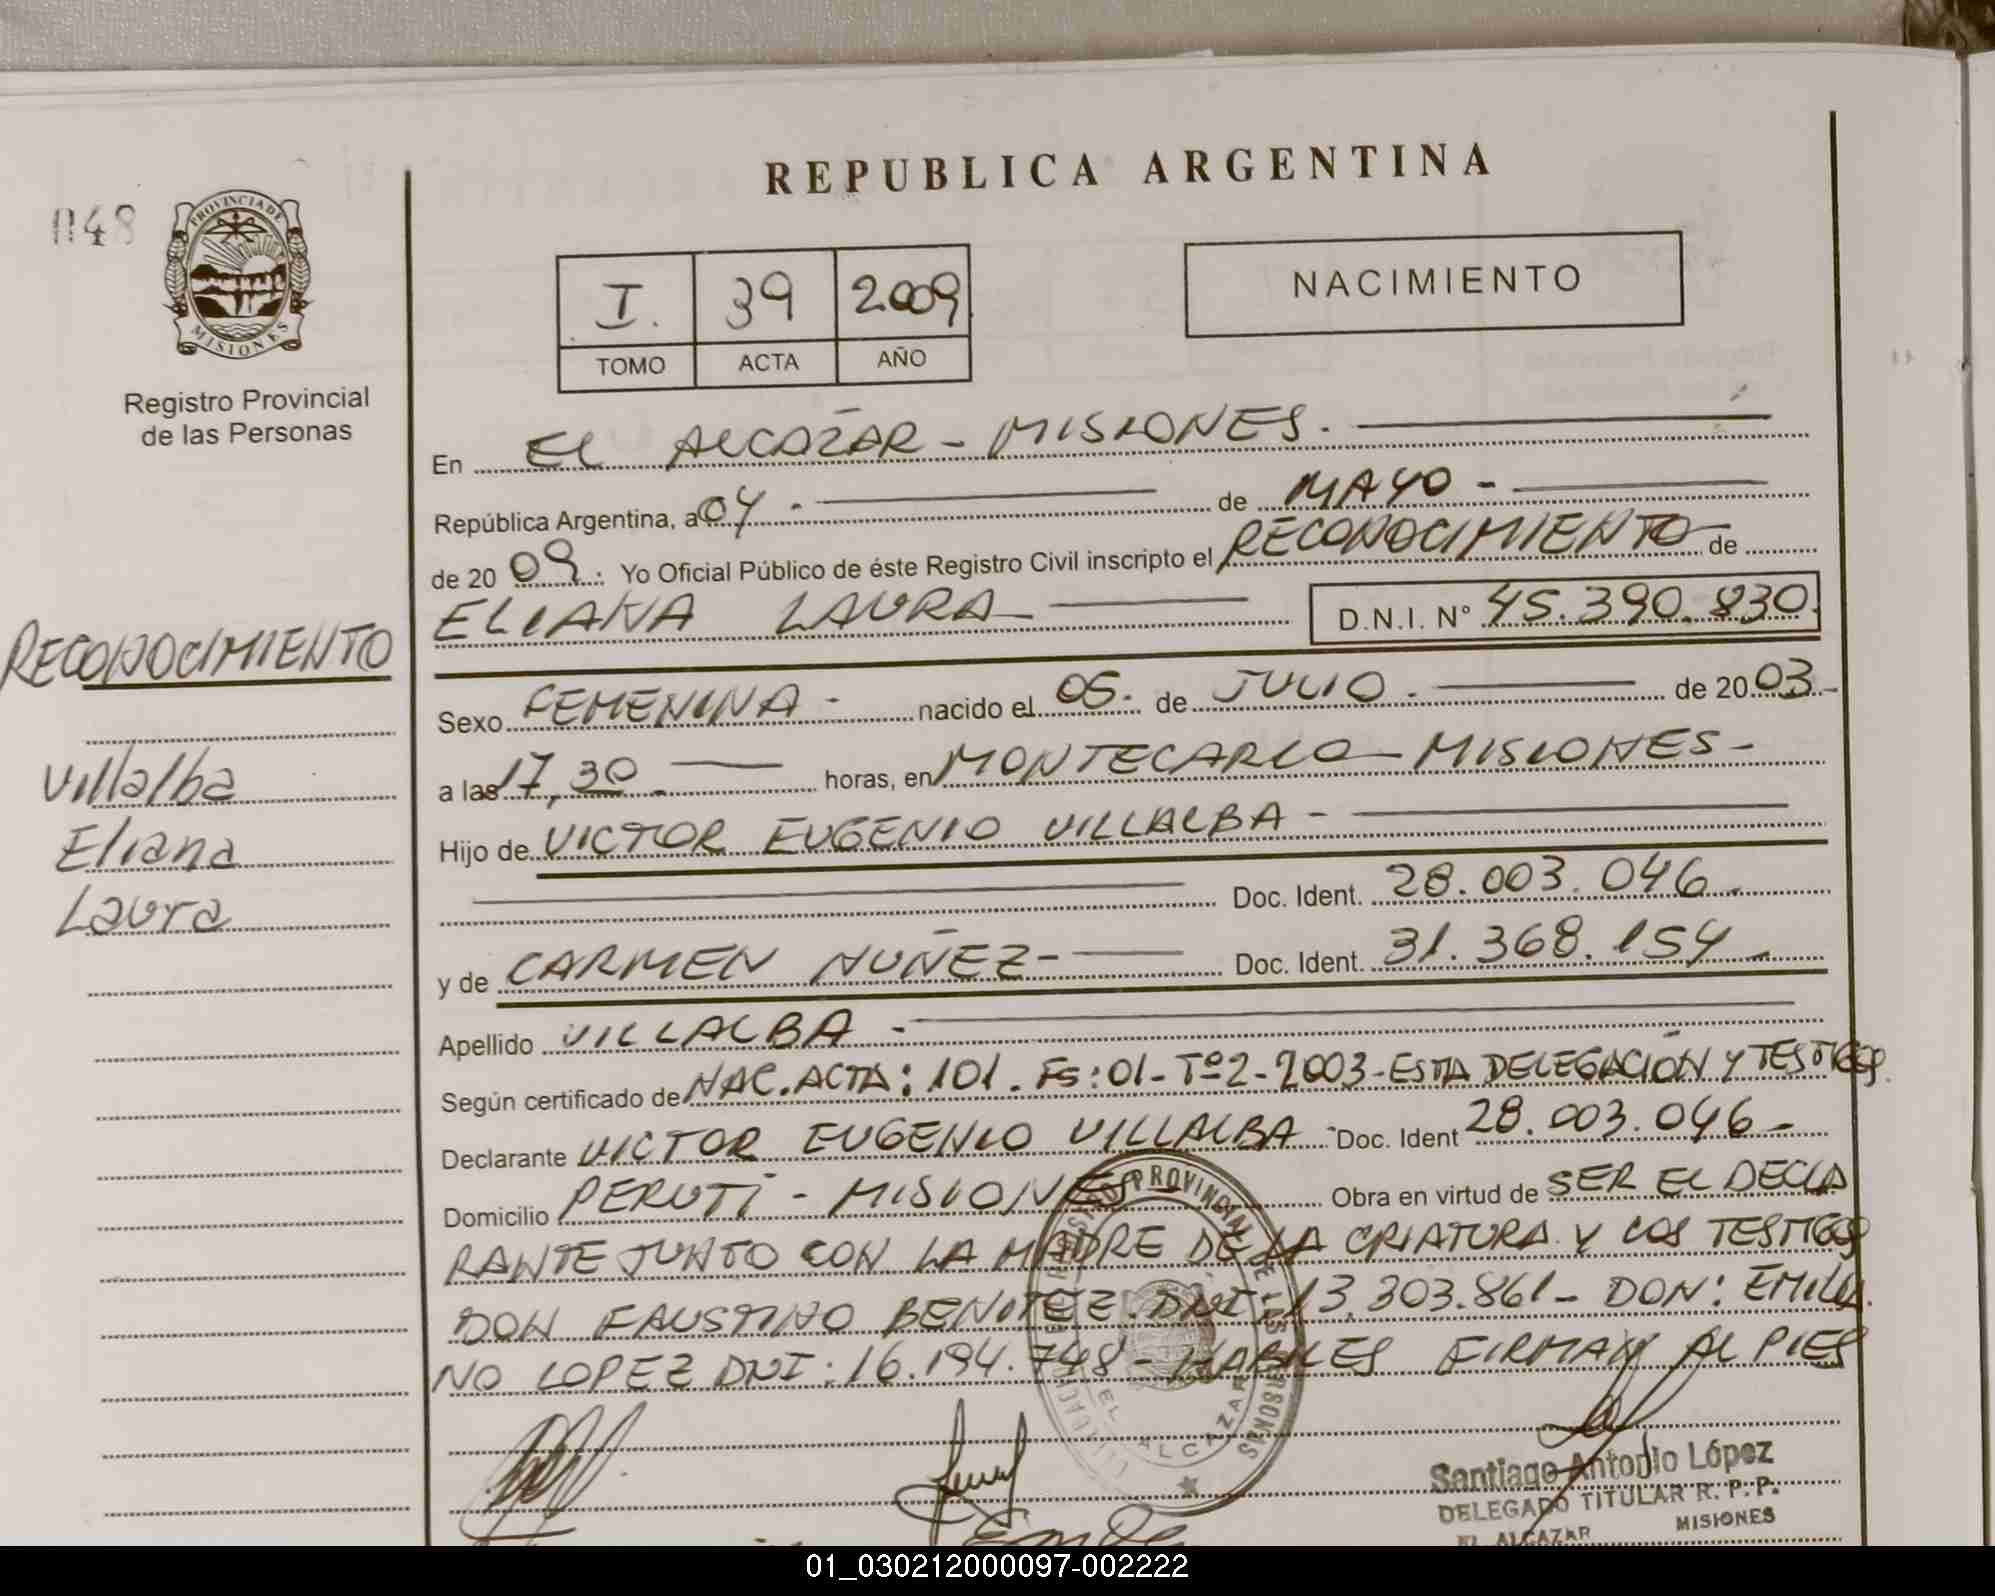 REPUBLICA ARGENTINA
048
PROVINCIA DE
MISIONES
Registro Provincial
de las Personas
I. 39 2009
TOMO ACTA AÑO
NACIMIENTO
En EL ALCÁZAR - MISIONES.
República Argentina, a 04 - de MAYO -
de 20 09. Yo Oficial Público de éste Registro Civil inscripto el RECONOCIMIENTO de
ELIANA LAURA D.N.I. N° 45.390.830.
RECONOCIMIENTO
Sexo FEMENINA - nacido el 05. de JULIO. de 20 03-
a las 17,30 horas, en MONTECARLO - MISIONES -
Villalba
Eliana
Laura
Hijo de VICTOR EUGENIO VILLALBA -
Doc. Ident. 28.003.046.
y de CARMEN NUÑEZ- Doc. Ident. 31.368.154.
Apellido VILLALBA -
Según certificado de NAC. ACTA: 101. Fs: 01- Tº2-2003-ESTA DELEGACIÓN Y TESTIGOS.
Declarante VICTOR EUGENIO VILLALBA Doc. Ident 28.003.046-
Domicilio PERUTI - MISIONES Obra en virtud de SER EL DECLA
RANTE JUNTO CON LA MADRE DE LA CRIATURA Y LOS TESTIGOS
DON FAUSTINO BENITEZ. DNI: 13.303.861- DON: EMILIA
NO LOPEZ DNI: 16.194.748- HABILES FIRMAN AL PIES
EL ALCAZAR
Santiago Antonio López
DELEGADO TITULAR R. P. P.
EL ALCAZAR MISIONES
01_030212000097-002222